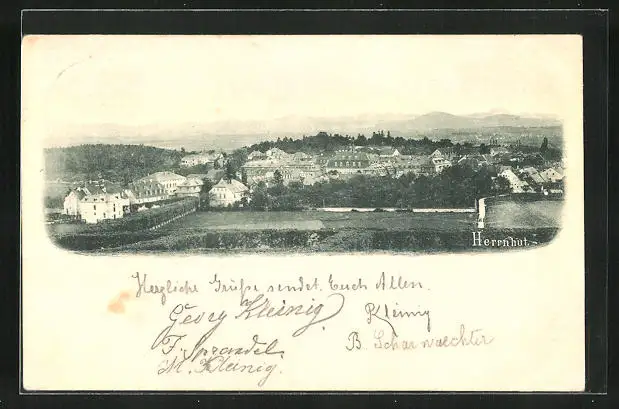 Herrnhut.
Herzliche Grüße sendet Euch Allen.
Georg Kleinig Kleinig
F. Sprandel B. Scharwaechter
M. Kleinig.